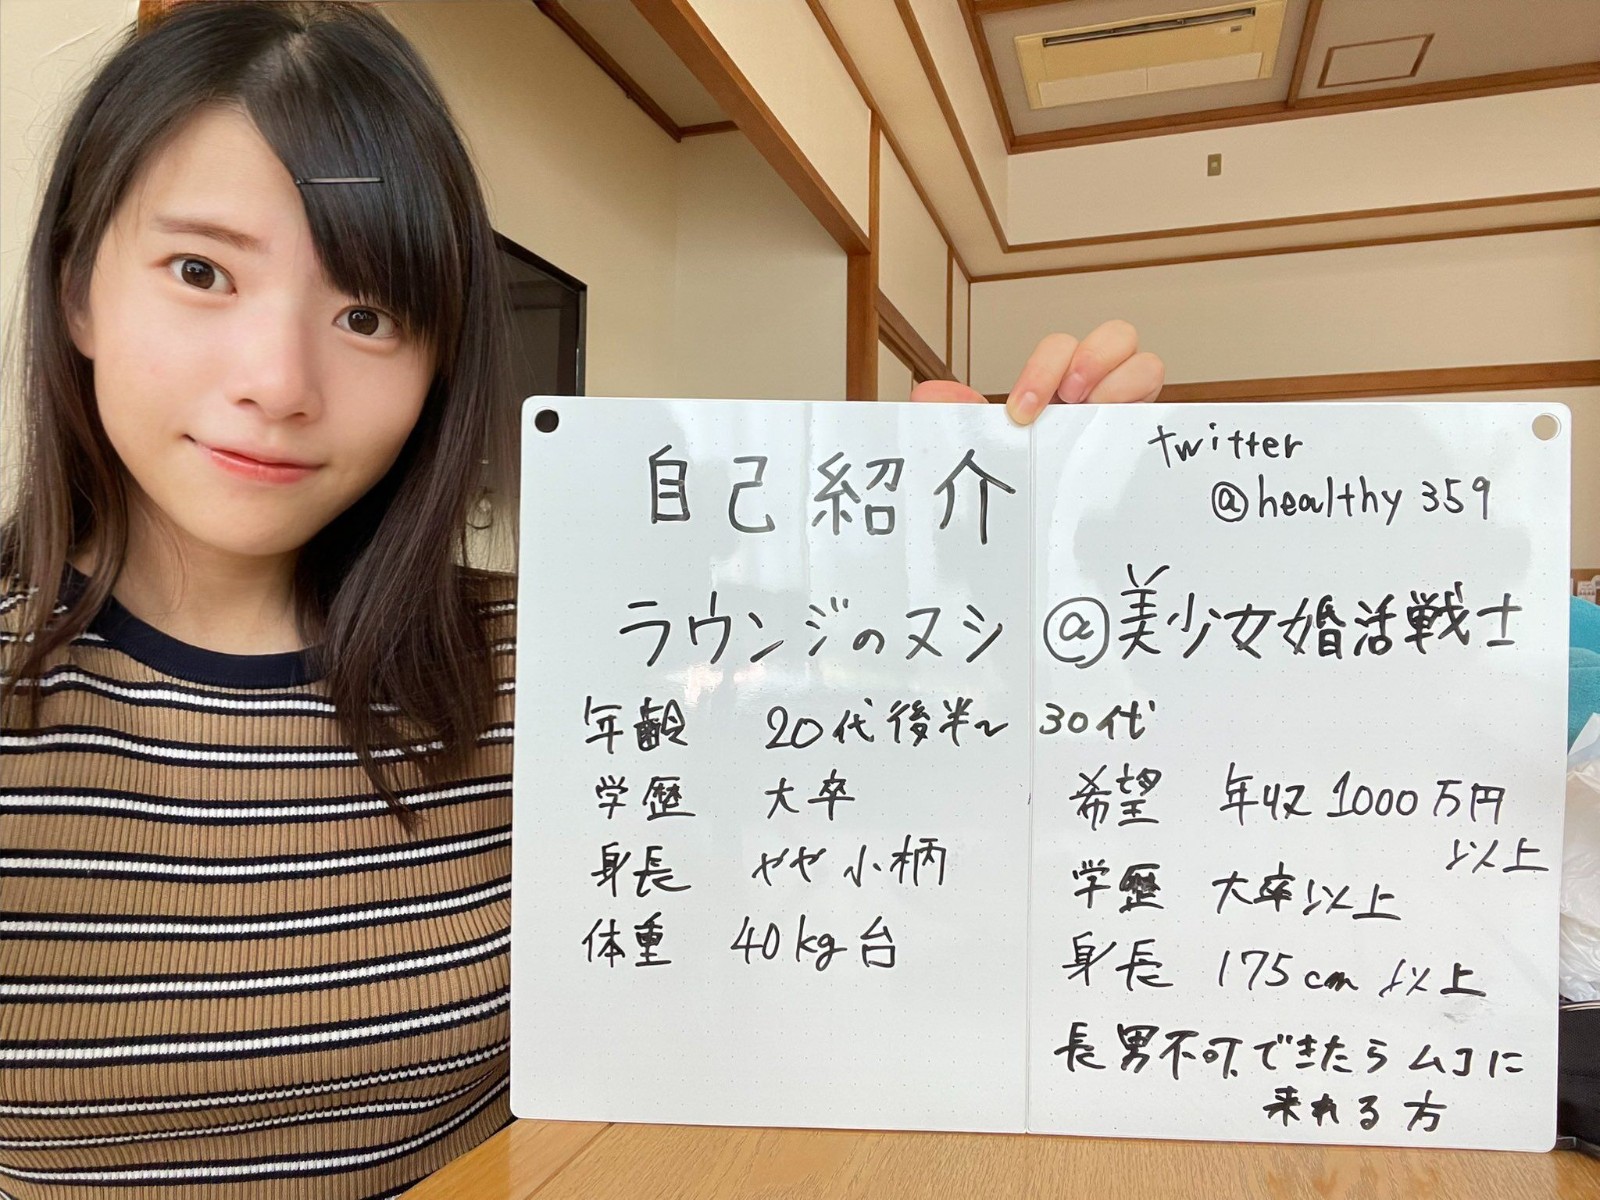 自己紹介
twitter
@healthy359
ラウンジのヌシ@美少女婚活戦士
年齢 20代後半~30代
学歴 大卒
身長 やや小柄
体重 40kg台
希望 年収1000万円
以上
学歴 大卒以上
身長 175cm以上
長男不可、できたらムコに
来れる方